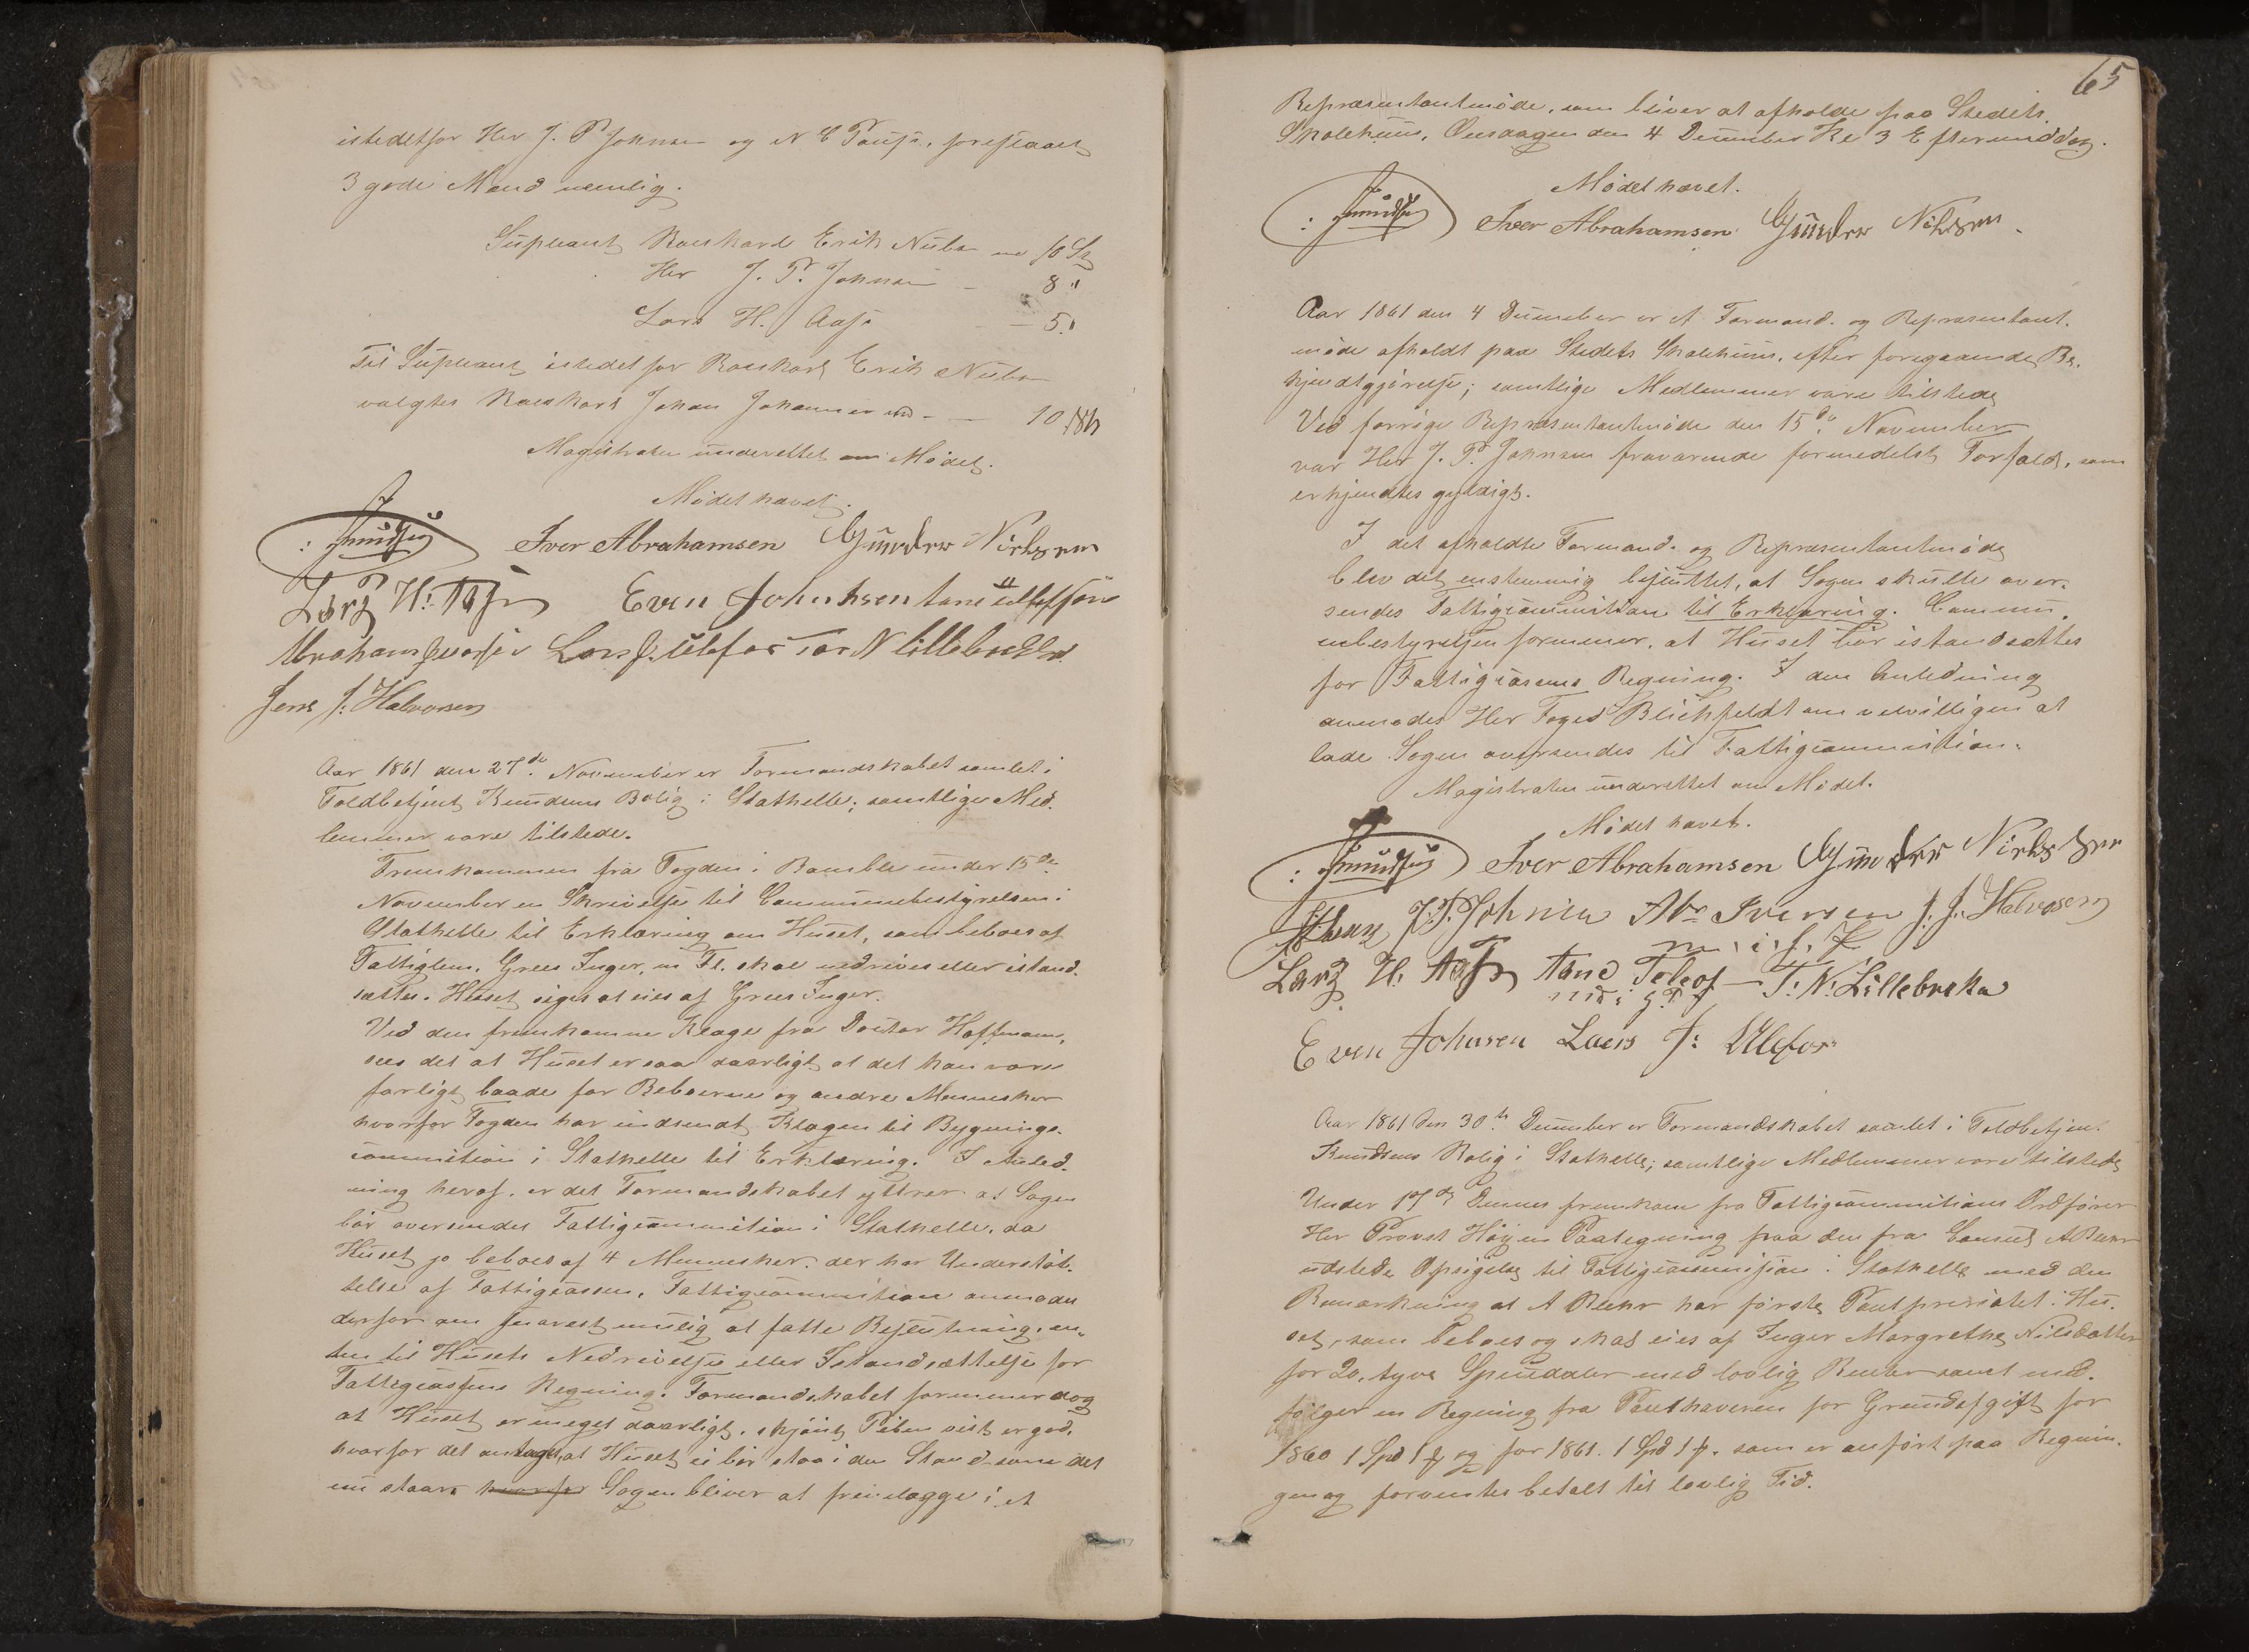 istedetfor Her J. P Johnsen og N E Pausse, foreslaaes
3 gode Mænd nemlig.
Supleant Raeskarl Erik Nubo med 16 St
Her J. P. Johnsen - 8 "
Lars H. Aase - 5 "
Til Supleant istedetfor Raeskarl Erik Nubo
valgtes Raeskarl Johan Johannesen - 10 St
Magistraten underettet om Mødet.
Mødet hævet.
Knudsen Iver Abrahamsen Gunder Nielsen
Lars H. Aase Even Johnhsen
Abraham Lars J. N Lillebrekke
Jens J. Halvorsen
Aar 1861 den 27de November er Formandskabet samlet i
Toldbetjent Knudsens Bolig i Stathelle; samtlige Med-
lemmer vare tilstede.
Fremkommen fra Fogden i Bamble under 15de
November en Skrivelse til Communebestyrelsen i
Stathelle til Erklæring om Huset, som beboes af
Fattiglem. Grees Inger, m Fl. skal nedrives eller istand-
sættes. Huset siges at eies af Grees Inger.
Ved den fremkomne Klage fra Doctor Hoffmann,
sees det at Huset er saa daarligt at det kan være
farligt baade for Beboerne og andre Mennesker
hvorfor Fogden har indsendt Klagen til Bygnings-
commition i Stathelle til Erklæring. I Anled-
ning heraf, er det Formandskabet yttrer at Sagen
bør oversendes Fattigcommition i Stathelle, da
Huset jo beboes af 4 Mennesker, der har Understøt-
telse af Fattigcassen. Fattigcommition anmodes
derfor om snarest mulig at fatte Beslutning, en-
ten til Husets Nedrivelse eller Istandsættelse for
Fattigcassens Regning. Formandskabet formener dog
at Huset er meget daarligt, skjønt Piben sist er god,
hvorfor det antages, at Huset ei bør staa i den Stand som det
nu staar. hvorfor Sagen bliver at fremlægge i et
65
Repræsentantmøde, som bliver at afholde paa Stedets
Skolehuus, Onsdagen den 4 December Kl 3 Eftermiddag.
Mødet hævet.
Knudsen Iver Abrahamsen Gunder Nielsen
Aar 1861 den 4 December er et Formand- og Repræsentant-
møde afholdt paa Stedets Skolehuus, efter foregaaende Be-
kjendtgjørelse; samtlige Medlemmer vare tilstede
Ved forrige Repræsentantmøde den 15de November
var Her J. P. Johnsen fraværende formedelst Forfald, som
erkjendtes gyldigt.
I det afholdte Formand- og Repræsentantmøde
blev det enstemmig besluttet, at Sagen skulle over-
sendes Fattigcommition til Erklæring. Commu-
nebestyrelsen formener, at Huset bør istandsættes
for Fattigcassens Regning. I den Anledning
anmodes Her Foged Blichfeldt om velvilligen at
lade Sagen oversendes til Fattigcommition.
Magistraten underettet om Mødet.
Mødet hævet.
Knudsen Iver Abrahamsen Gunder Nielsen
J. P. Johnsen Abr Iversen J. J. Halvorsen
m. i. f. P
Lars H. Aase T. N. Lillebrekke
Even Johnsen Laers J: Ulefos
Aar 1861 den 30te December er Formandskabet samlet i Toldbetjent
Knudsens Bolig i Stathelle; samtlige Medlemmer vare tilstede
Under 17de Dennes fremkom fra Fattigcommitions Ordfører
Her Provst Høyen Paategning paa den fra Consul A Blehr
udstede Opsigelse til Fattigcommission i Stathelle med den
Bemærkning at A Blehr har første Pantprioritet i Hu-
set, som beboes og skal eies af Inger Margrethe Nilsdatter
for 20, tyve Speciedaler med lovlig Renter samt med-
følger en Regning fra Panthaveren for Grundafgift for
1860 1 Spd 1 ƒ og for 1861. 1 Spd 1 ƒ. som er anført paa Regnin-
gen og forventes betalt til lovlig Tid.